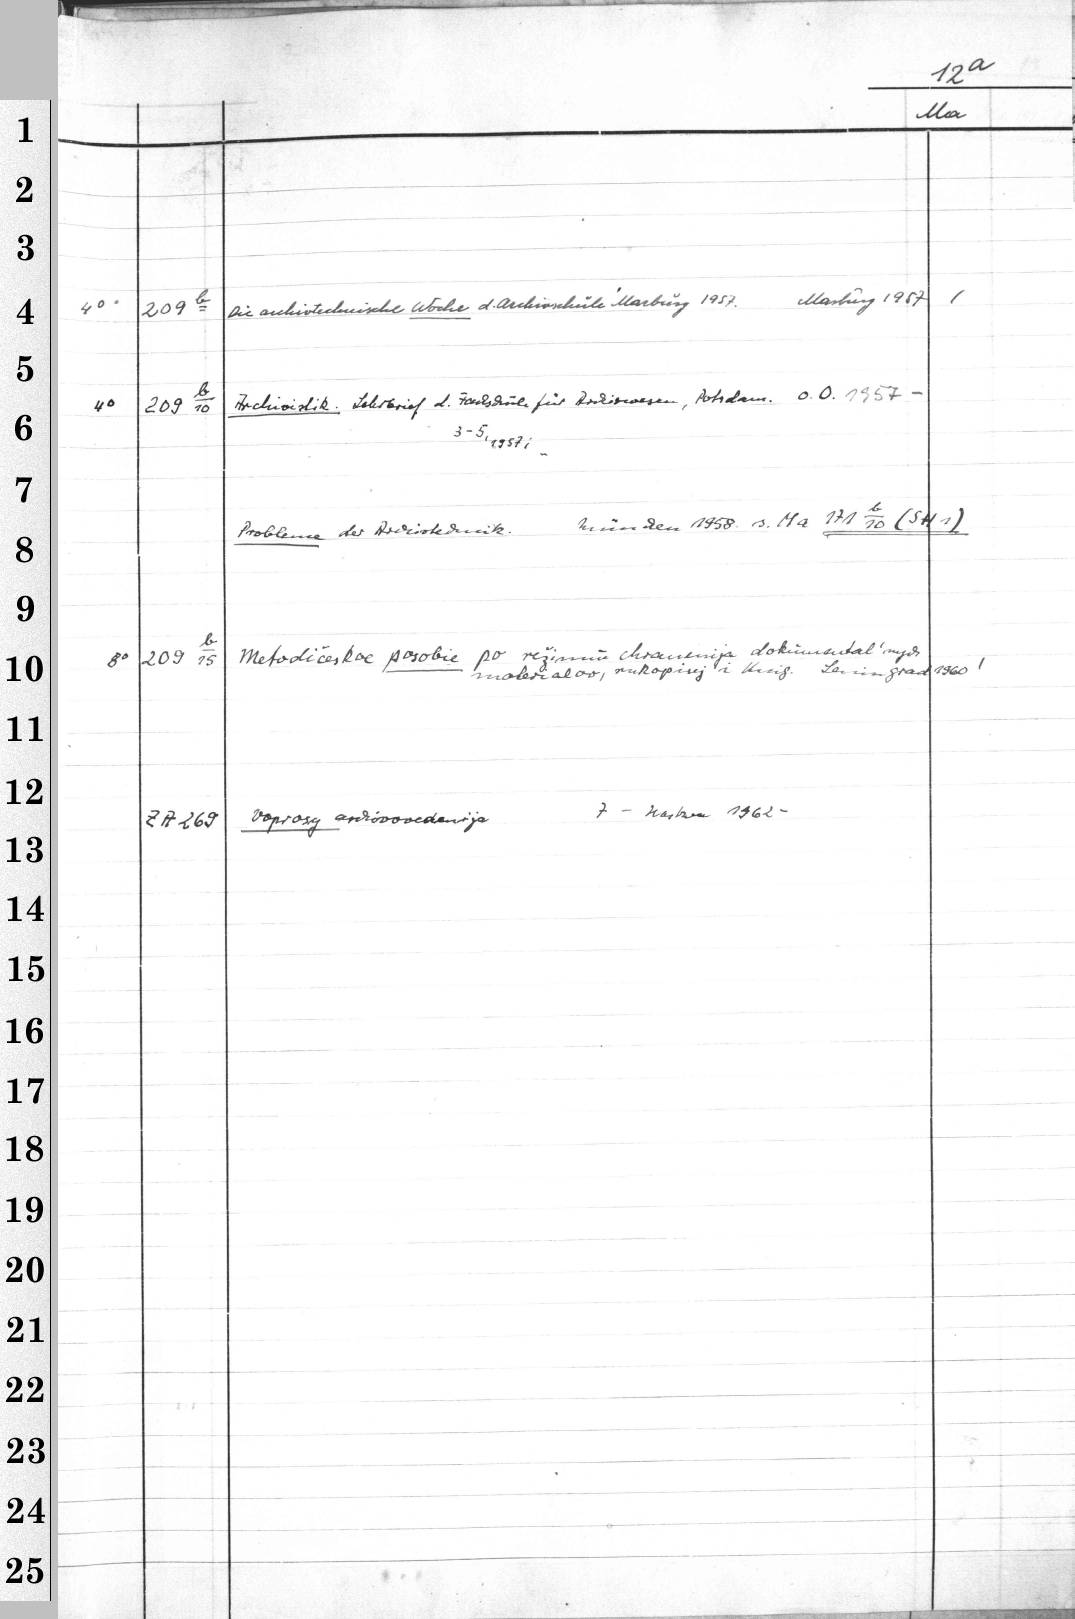 12a
Ma
1
2
3
4
4° 209 b Die archivtechnische Woche d. Archivschule Marburg 1957. Marburg 1957
5
4° 209 b/10 Archivistik. Lehrbrief d. Fachschule für Archivwesen, Potsdam. o. O. 1957 –
6
3-5, 1957;
7
Probleme der Archivtechnik. München 1958. s. Ma 171 b/10 (SH 1)
8
9
8° 209 b/15 Metodičeskoe posobie po režimu chranenija dokumental'nych
10
materialov, rukopisej i knig. Leningrad 1960
11
12
ZA 269 Voprosy archivovedenija 7 – Moskva 1962 –
13
14
15
16
17
18
19
20
21
22
23
24
25